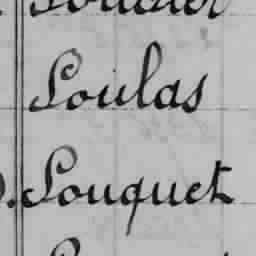 Soulas
Souquet